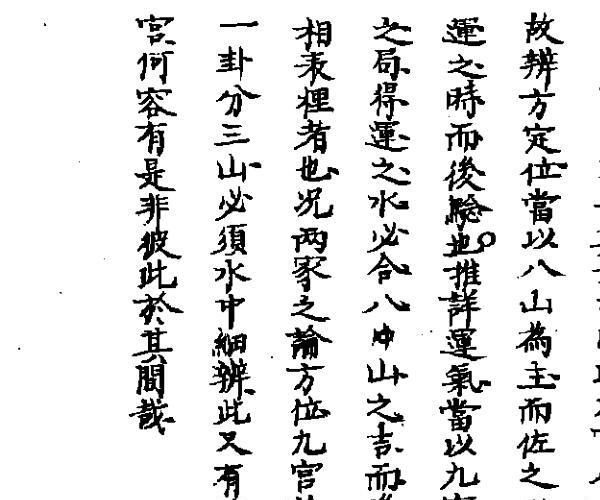 故辨方定位當以八山為主而佐之
運之時而後驗也推詳運氣當以九宮
之局得運之水必合八中山之吉而後
相表裡者也况两家之論方位九宮
一卦分三山必須水中細辨此又有
宮何容有是非彼此於其間哉